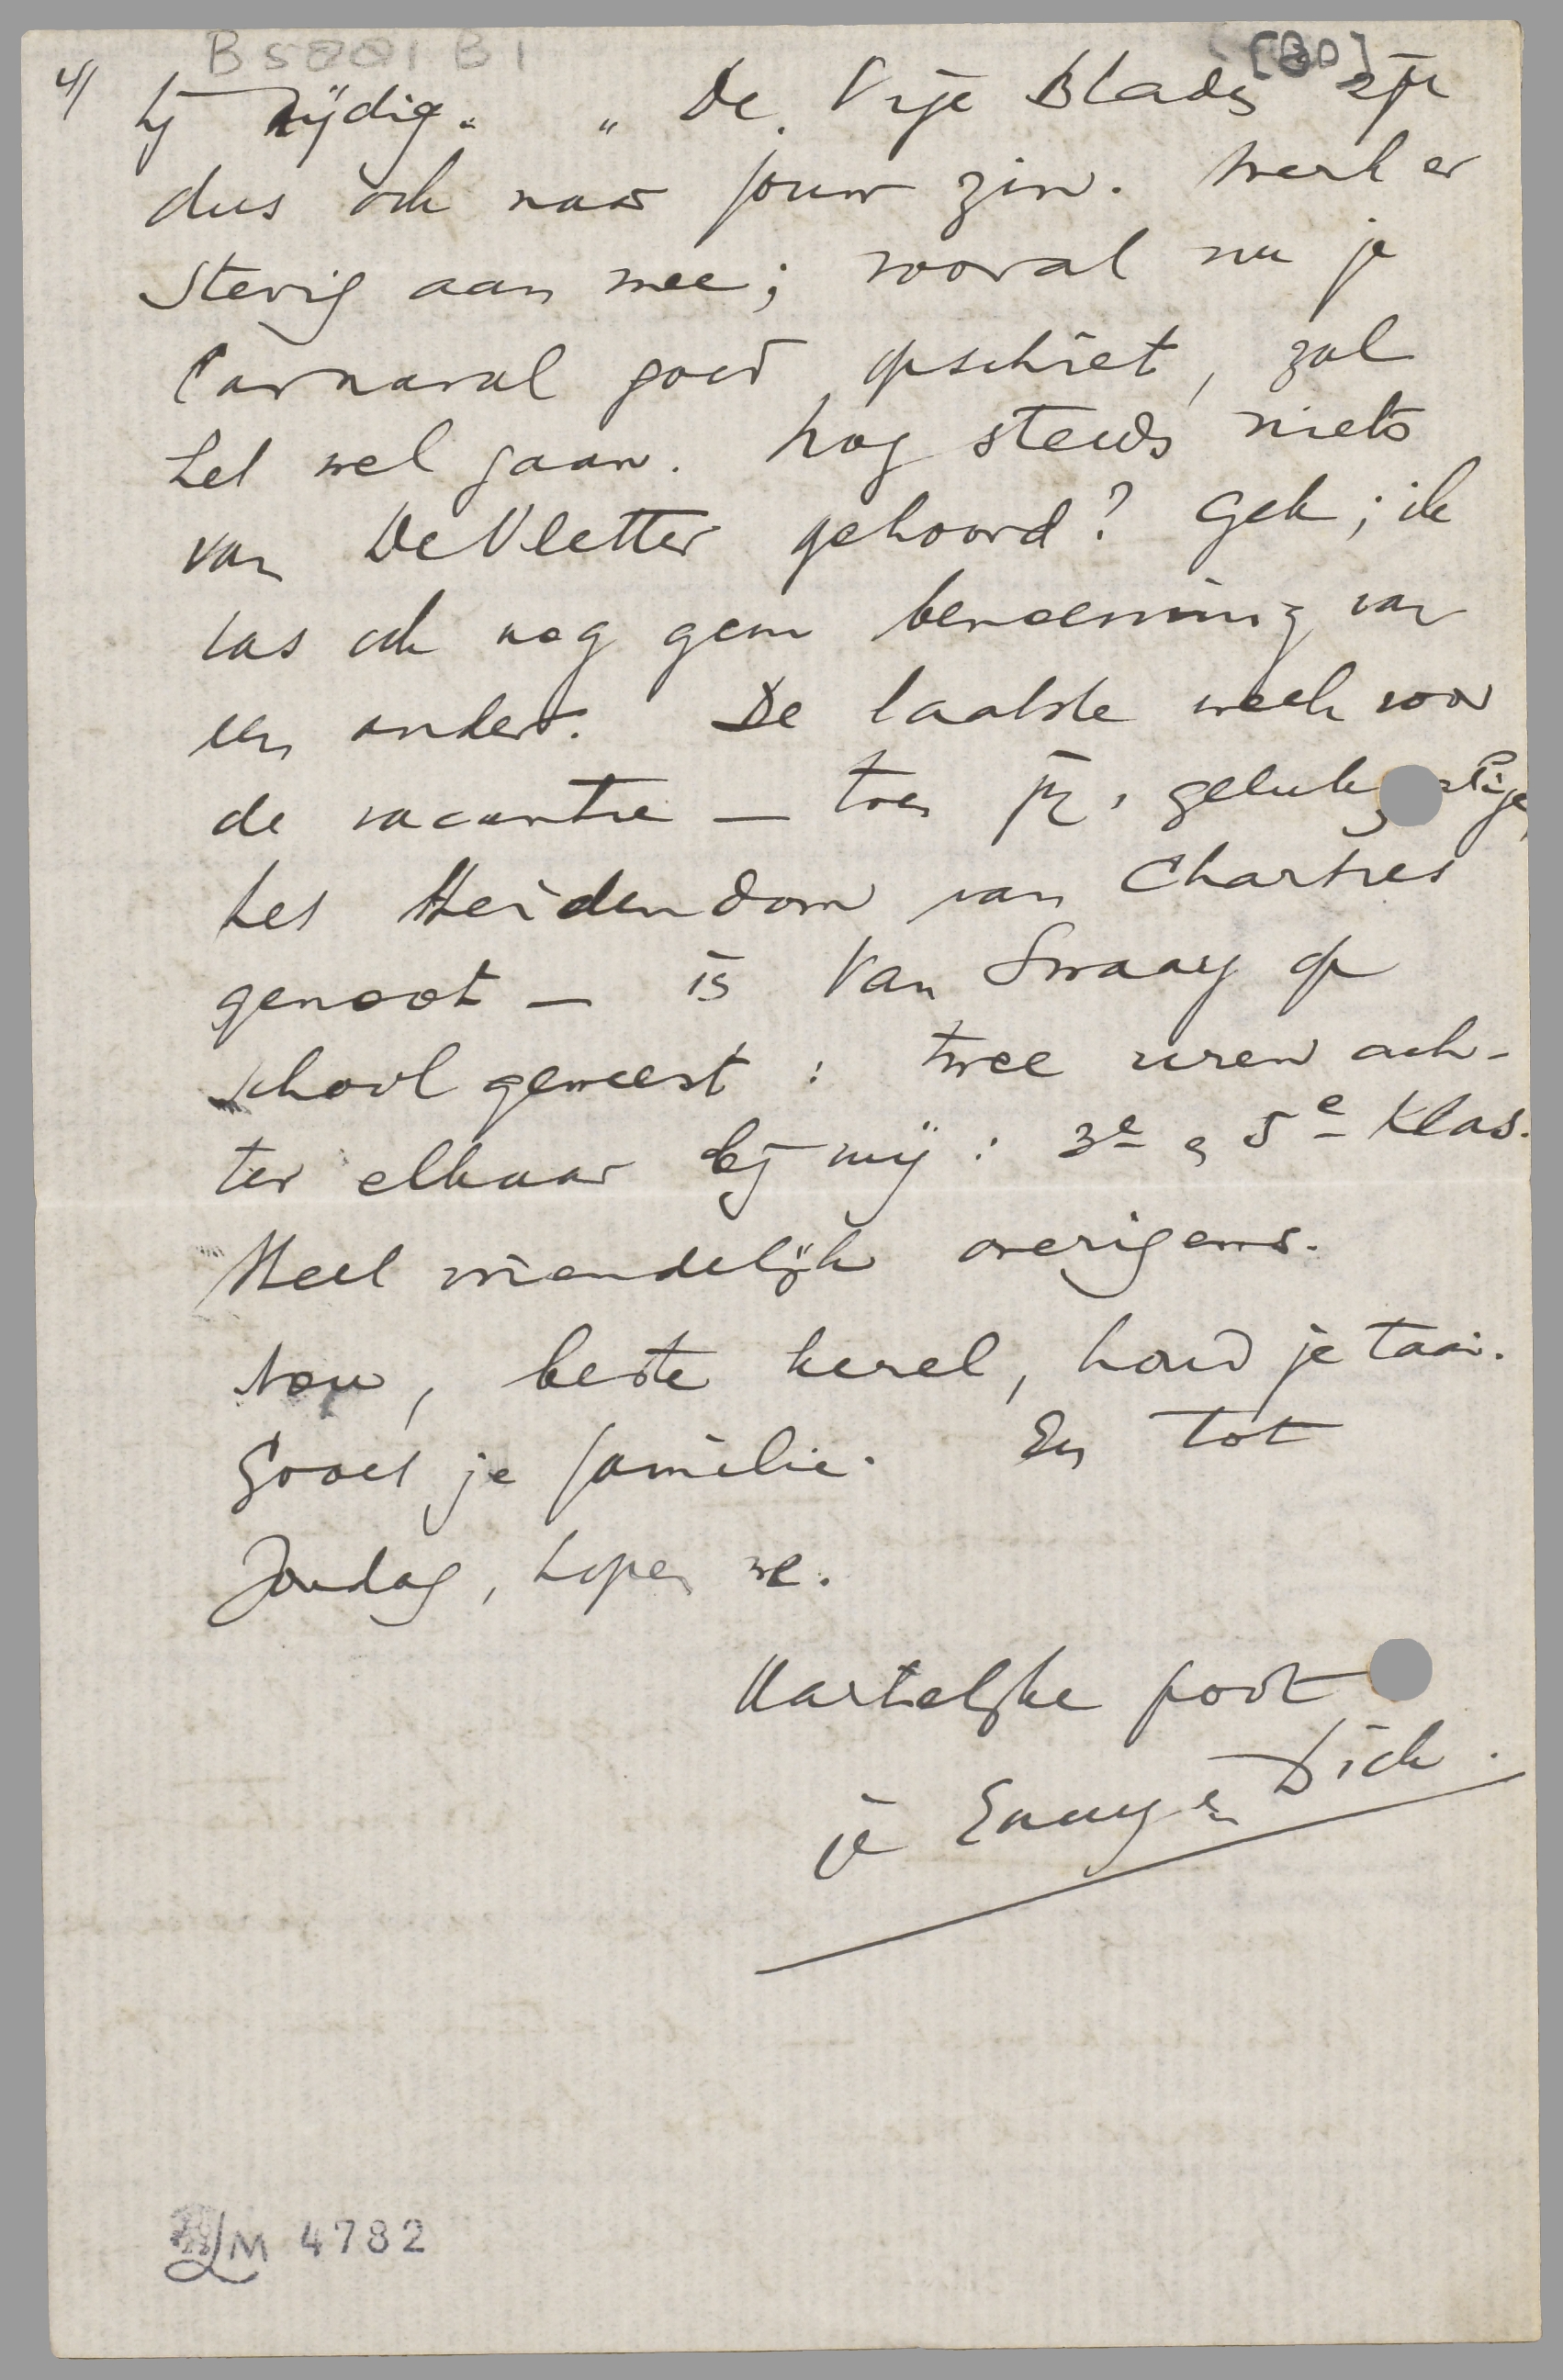 B 5001 B 1 [BD]
4/ hij nijdig. „De Vrije Bladen zijn
dus ook naar jouw zin. Werk er
stevig aan mee; vooral nu je
Carnaval goed opschiet, zal
het wel gaan. Nog steeds niets
van De Vletter gehoord? Gek; ik
las ook nog geen benoeming van
een ander. De laatste week voor
de vacantie — toen jij,
het Heidendom van Chartres
genoot — is Van Swaay op
school geweest: twee uren ach-
ter elkaar bij mij: 3e en 5e klas.
Heel vriendelijk overigens.
Nou, beste kerel, houd je taai.
Groet je familie. En tot
Zondag, hopen we.
Hartelijke poot
je Enny en Dick.
LM 4782